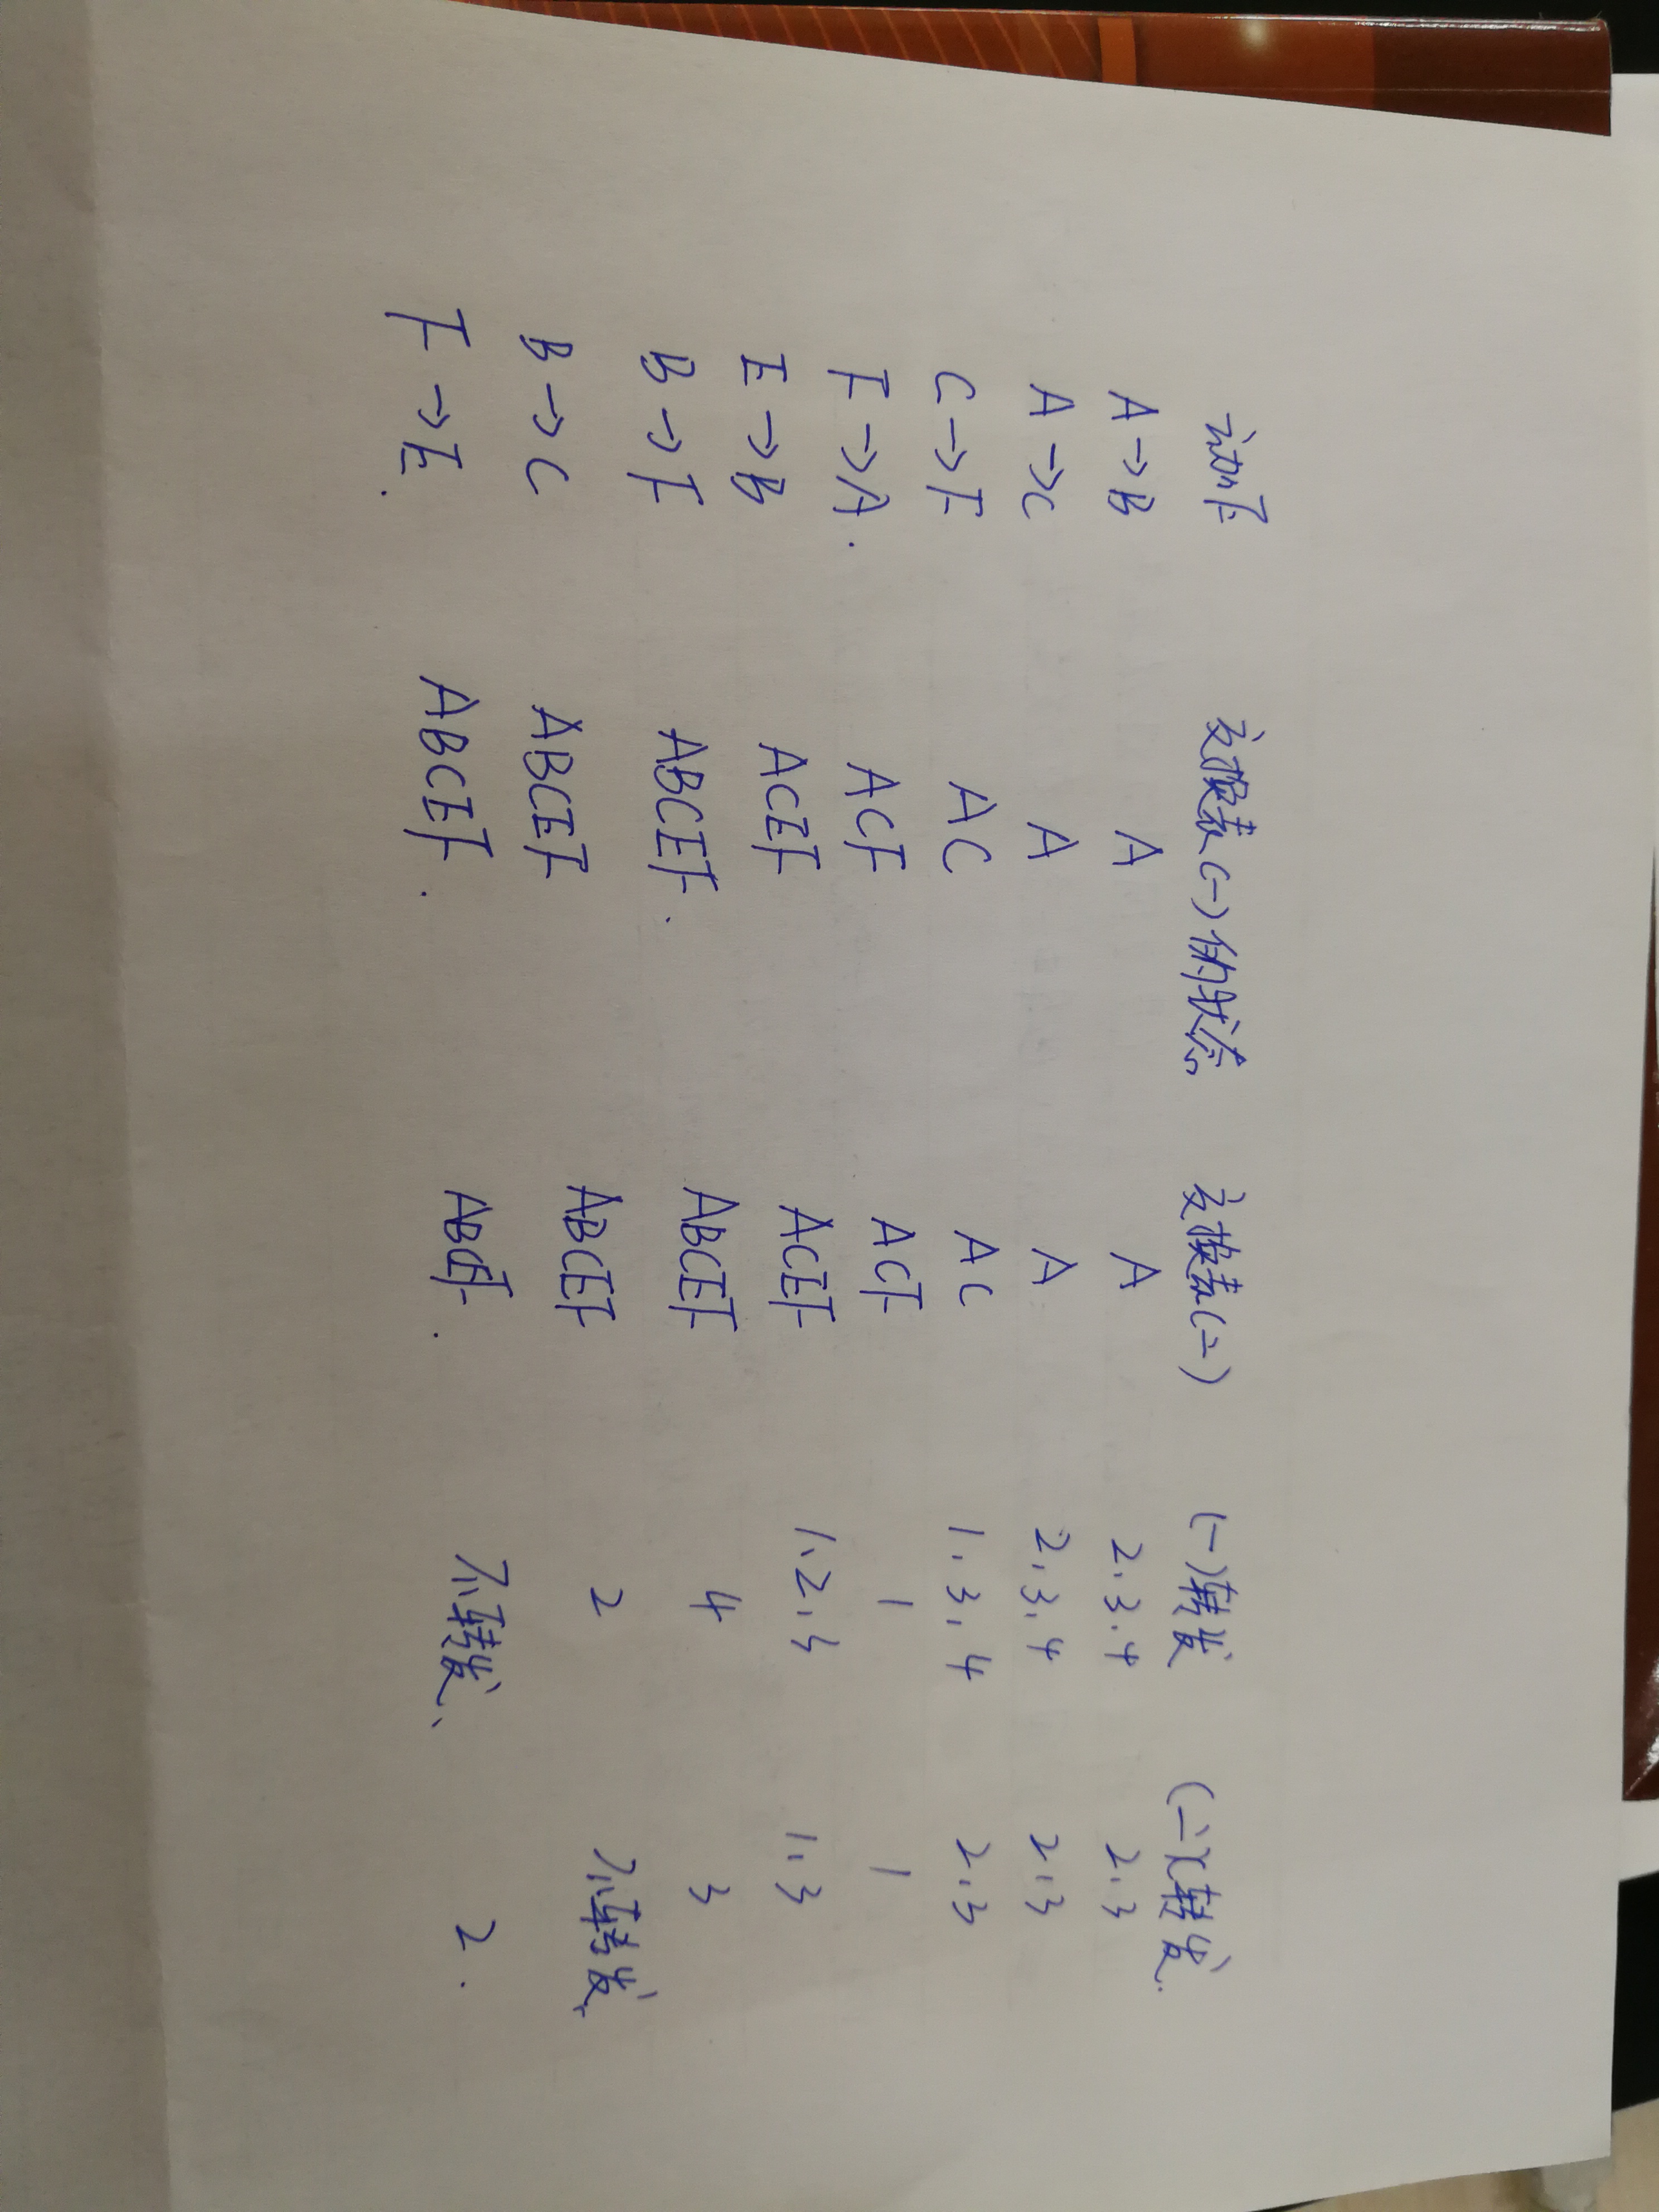 动作 交换表(一)的状态 交换表(二) (一)转发 (二)转发.
A→B A A 2.3.4 2.3
A→C A A 2.3.4 2.3
C→F AC AC 1.3.4 2.3
F→A. ACF ACF 1 1
E→B ACEF ACEF 1.2.3 1.3
B→F ABCEF. ABCEF 4 3
B→C ABCEF ABCEF 2 不转发
F→E. ABCEF. ABCEF. 不转发、 2.